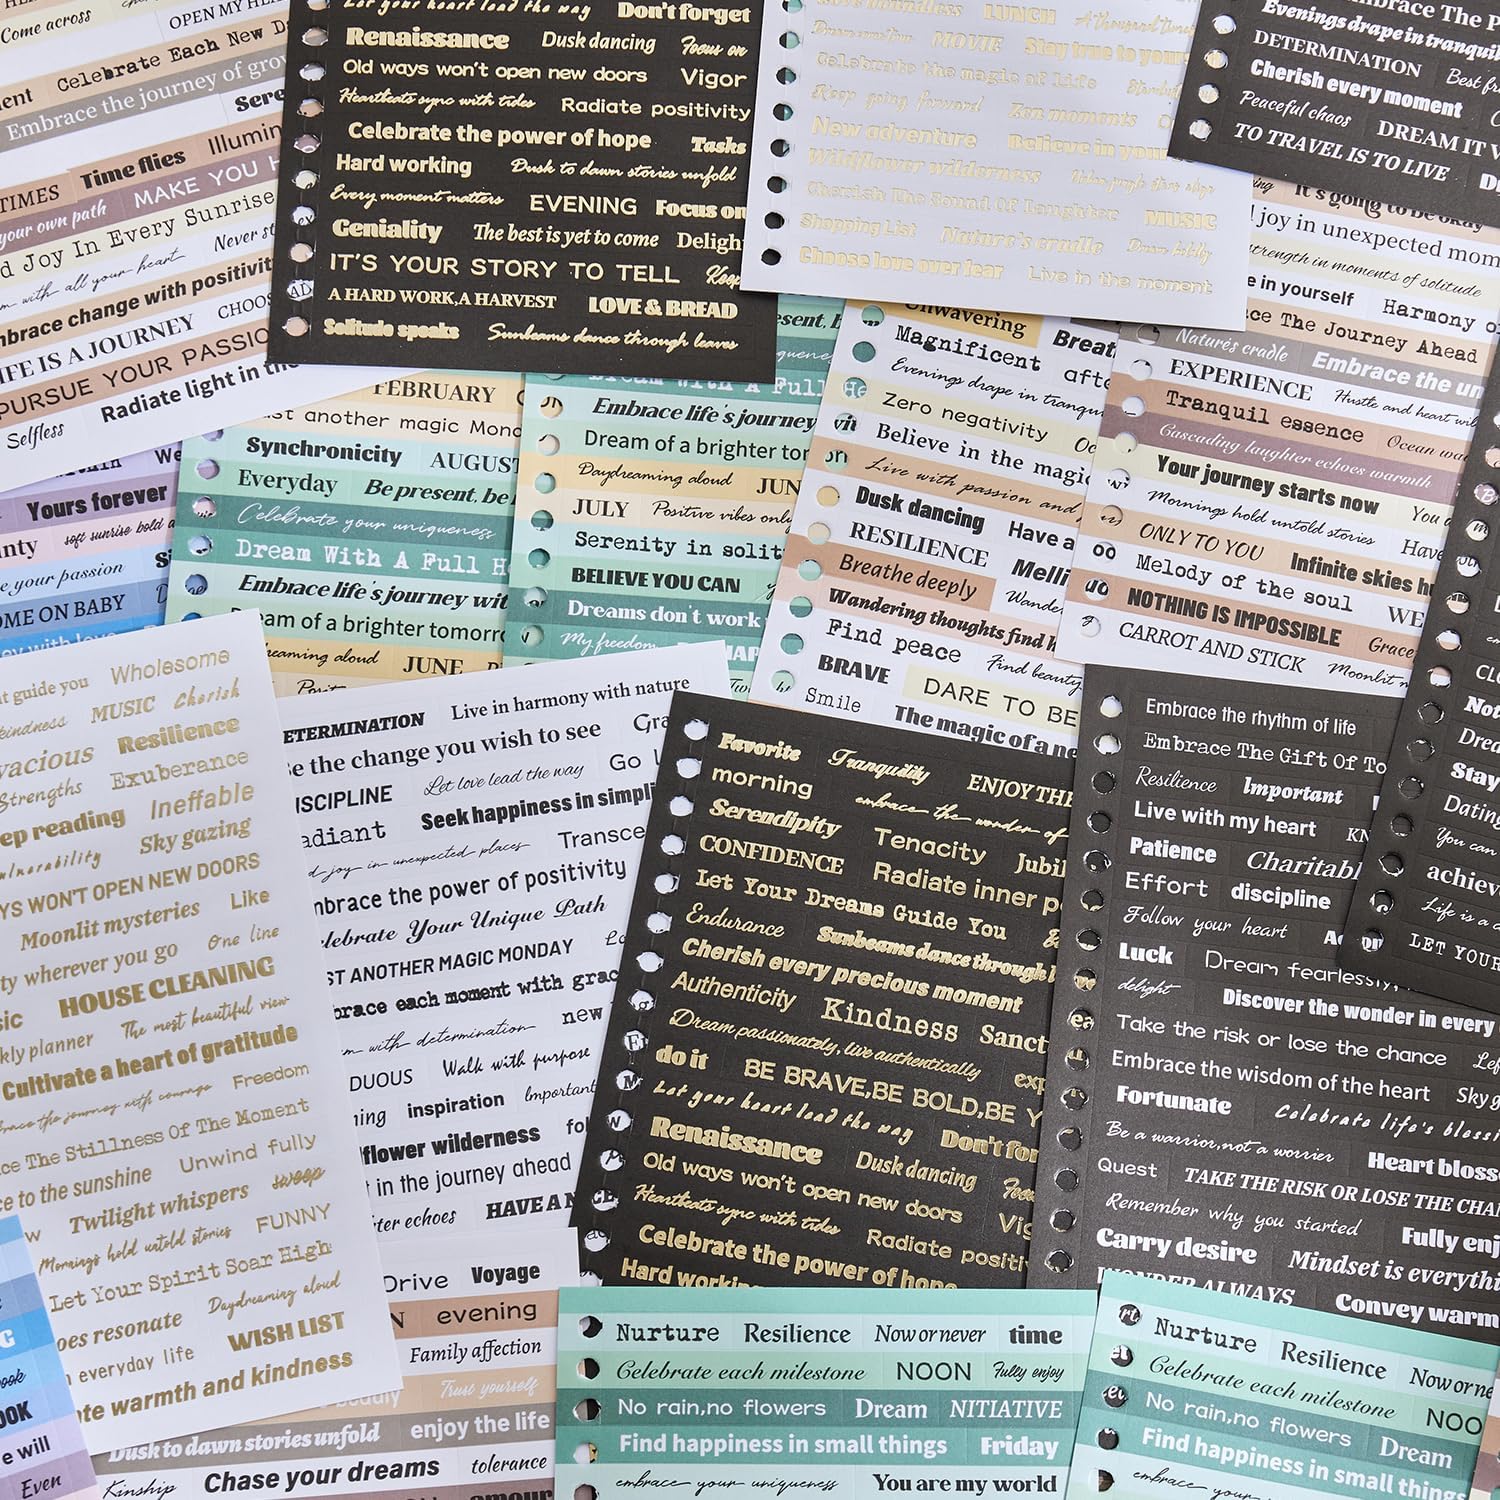 Come across
OPEN MY HEA
Celebrate Each New Da
Embrace the journey of grow
Time flies
TIMES
MAKE YOU H
your own path
d Joy In Every Sunrise
Never st
with all your heart
brace change with positivit
IFE IS A JOURNEY CHOOS
PURSUE YOUR PASSIO
Selfless Radiate light in the
Let your heart lead the way Don't forget
Renaissance Dusk dancing Focus on
Old ways won't open new doors Vigor
Heartbeats sync with tides Radiate positivity
Celebrate the power of hope Tasks
Hard working Dusk to dawn stories unfold
Every moment matters EVENING Focus on
Geniality The best is yet to come Deligh
IT'S YOUR STORY TO TELL Keep
A HARD WORK,A HARVEST LOVE & BREAD
Solitude speaks Sunbeams dance through leaves
LUNCH A thousand times
MOVIE Stay true to your
Celebrate the magic of life
Keep going forward Zen moments
New adventure Believe in you
Wildflower wilderness
Cherish The Sound Of Laughter MUSIC
Shopping List Nature's cradle Dream boldly
Choose love over fear Live in the moment
Embrace The P
Evenings drape in tranquil
DETERMINATION Best fr
Cherish every moment
Peaceful chaos DREAM IT W
TO TRAVEL IS TO LIVE
It's going to be okay
joy in unexpected mom
strength in moments of solitude
e in yourself Harmony o
ce The Journey Ahead
Nature's cradle Embrace the un
EXPERIENCE Hustle and heart wil
Tranquil essence Ocean wa
Cascading laughter echoes warmth
Your journey starts now You
Mornings hold untold stories Have
ONLY TO YOU Infinite skies h
Melody of the soul WE
NOTHING IS IMPOSSIBLE Grace
CARROT AND STICK Moonlit
Unwavering
Magnificent Breat
Evenings drape in tranqu
Zero negativity
Believe in the magic
Live with passion and
Dusk dancing Have a
RESILIENCE Melli
Breathe deeply Wande
Wandering thoughts find h
Find peace Find beauty
BRAVE DARE TO BE
Smile The magic of a ne
FEBRUARY
st another magic Mond
Synchronicity AUGUST
Everyday Be present, be
Celebrate your uniqueness
Dream With A Full He
Embrace life's journey wit
Dream of a brighter tomorro
Daydreaming aloud JUNE
Dream With A Full He
Embrace life's journey
Dream of a brighter tom
Daydreaming aloud JUN
JULY Positive vibes only
Serenity in solit
BELIEVE YOU CAN
Dreams don't work
My freedom
Yours forever
soft sunrise bold
e your passion
OME ON BABY
t guide you Wholesome
kindness MUSIC Cherish
vacious Resilience
Strengths Exuberance
ep reading Ineffable
vulnerability Sky gazing
YS WON'T OPEN NEW DOORS
Moonlit mysteries Like
ty wherever you go One line
sic HOUSE CLEANING
kly planner The most beautiful view
Cultivate a heart of gratitude
brace the journey with courage Freedom
ce The Stillness Of The Moment
ce to the sunshine Unwind fully
w Twilight whispers sweep
Mornings hold untold stories FUNNY
Let Your Spirit Soar High
oes resonate Daydreaming aloud
n everyday life WISH LIST
te warmth and kindness
ETERMINATION Live in harmony with nature
e the change you wish to see Gra
ISCIPLINE Let love lead the way Go
adiant Seek happiness in simpli
d joy in unexpected places Transce
mbrace the power of positivity
elebrate Your Unique Path
ST ANOTHER MAGIC MONDAY
brace each moment with grac
m with determination new
DUOUS Walk with purpose
ning inspiration Important
lflower wilderness
t in the journey ahead
ter echoes HAVE A N
Drive Voyage
N evening
Family affection
Trust yourself
Dusk to dawn stories unfold enjoy the life
Kinship Chase your dreams tolerance
amour
Favorite Tranquility ENJOY THE
morning embrace the wonder of
Serendipity Tenacity Jubil
CONFIDENCE Radiate inner p
Let Your Dreams Guide You
Endurance Sunbeams dance through l
Cherish every precious moment
Authenticity Kindness Sanct
Dream passionately, live authentically
do it BE BRAVE,BE BOLD,BE Y
Let your heart lead the way exp
Renaissance Don't for
Old ways won't open new doors Dusk dancing
Heartbeats sync with tides Vig
Celebrate the power of hope Radiate positi
Hard workin
Embrace the rhythm of life
Embrace The Gift Of To
Resilience Important
Live with my heart KN
Patience Charitabl
Effort discipline
Follow your heart
Luck Dream fearlessly,
delight Discover the wonder in every
Take the risk or lose the chance Let
Embrace the wisdom of the heart Sky g
Fortunate Celebrate life's blessi
Be a warrior,not a worrier Heart bloss
Quest TAKE THE RISK OR LOSE THE CHA
Remember why you started Fully enj
Carry desire Mindset is everythi
WONDER ALWAYS Convey warm
Stay
Dating
You can
achiev
Life is a
LET YOUR
Nurture Resilience Now or never time
Celebrate each milestone NOON Fully enjoy
No rain,no flowers Dream NITIATIVE
Find happiness in small things Friday
embrace your uniqueness You are my world
Nurture Resilience Now or ne
Celebrate each milestone NOO
No rain,no flowers Dream
Find happiness in small things
embrace your uniqueness
OOK
e will
Even